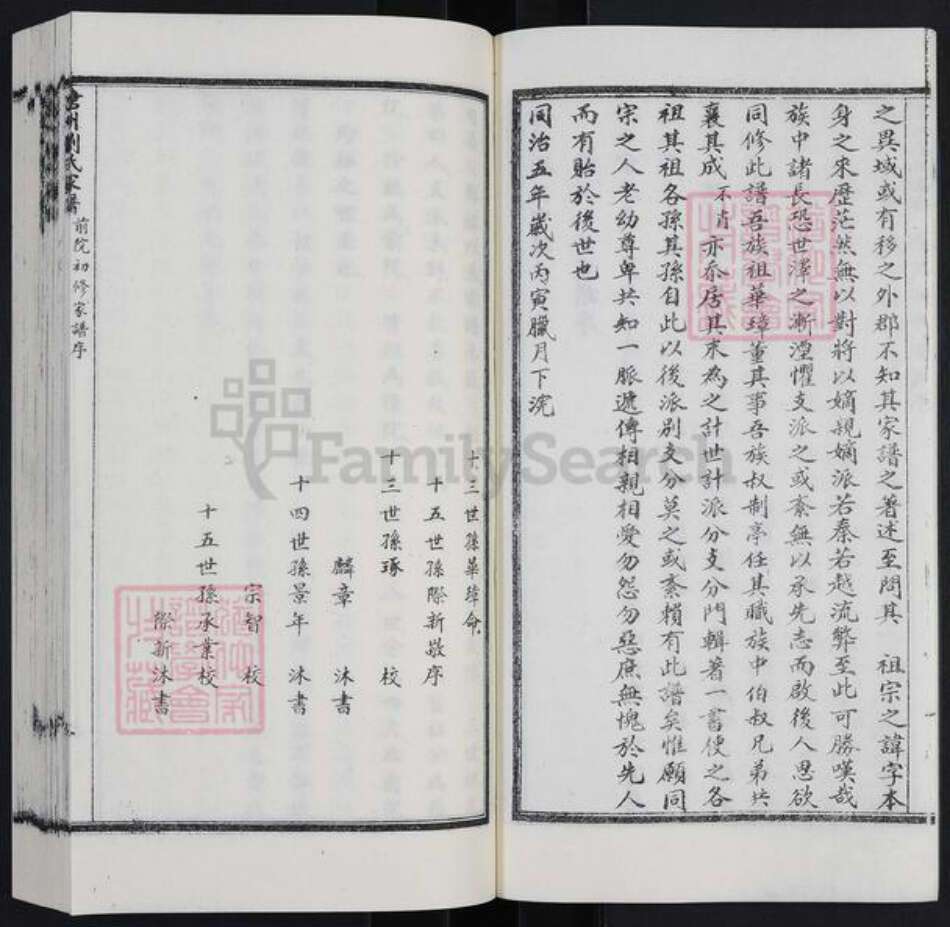 之異域或有移之外郡不知其家譜之著述至問其 祖宗之諱字本
身之来歷茫然無以對將以嫡親嫡派若秦若越流弊至此可勝嘆哉
族中諸長恐世澤之漸湮懼支派之或紊無以承先志而啟後人思欲
同修此譜吾族祖華璋董其事吾族叔制亭任其職族中伯叔兄弟共
襄其成不肖亦忝居其末為之計世計派分支分門輯著一書使之各
祖其祖各孫其孫自此以後派別支分莫之或紊賴有此譜矣惟願同
宗之人老幼尊卑共知一脈遞傳相親相愛勿怨勿惡庶無愧於先人
而有貽於後世也
同治五年歲次丙寅臘月下浣
十三世孫華璋命
十五世孫際新敬序
十三世孫琢 校
麟章 沐書
十四世孫景年 沐書
宗智 校
十五世孫承業校
際新沐書
劉氏家譜
前院初修家譜序
FamilySearch